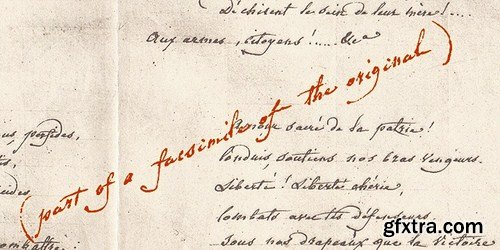 Déchirent le sein de leur mère !....
Aux armes, citoyens !..... &ca
us, perfides,
(part of a facsimile of the original)
Amour sacré de la patrie !
Conduis, soutiens nos bras vengeurs.
Liberté ! Liberté chérie,
Combats avec tes défenseurs,
Sous nos drapeaux que la victoire
combattre:
gfxtra.com